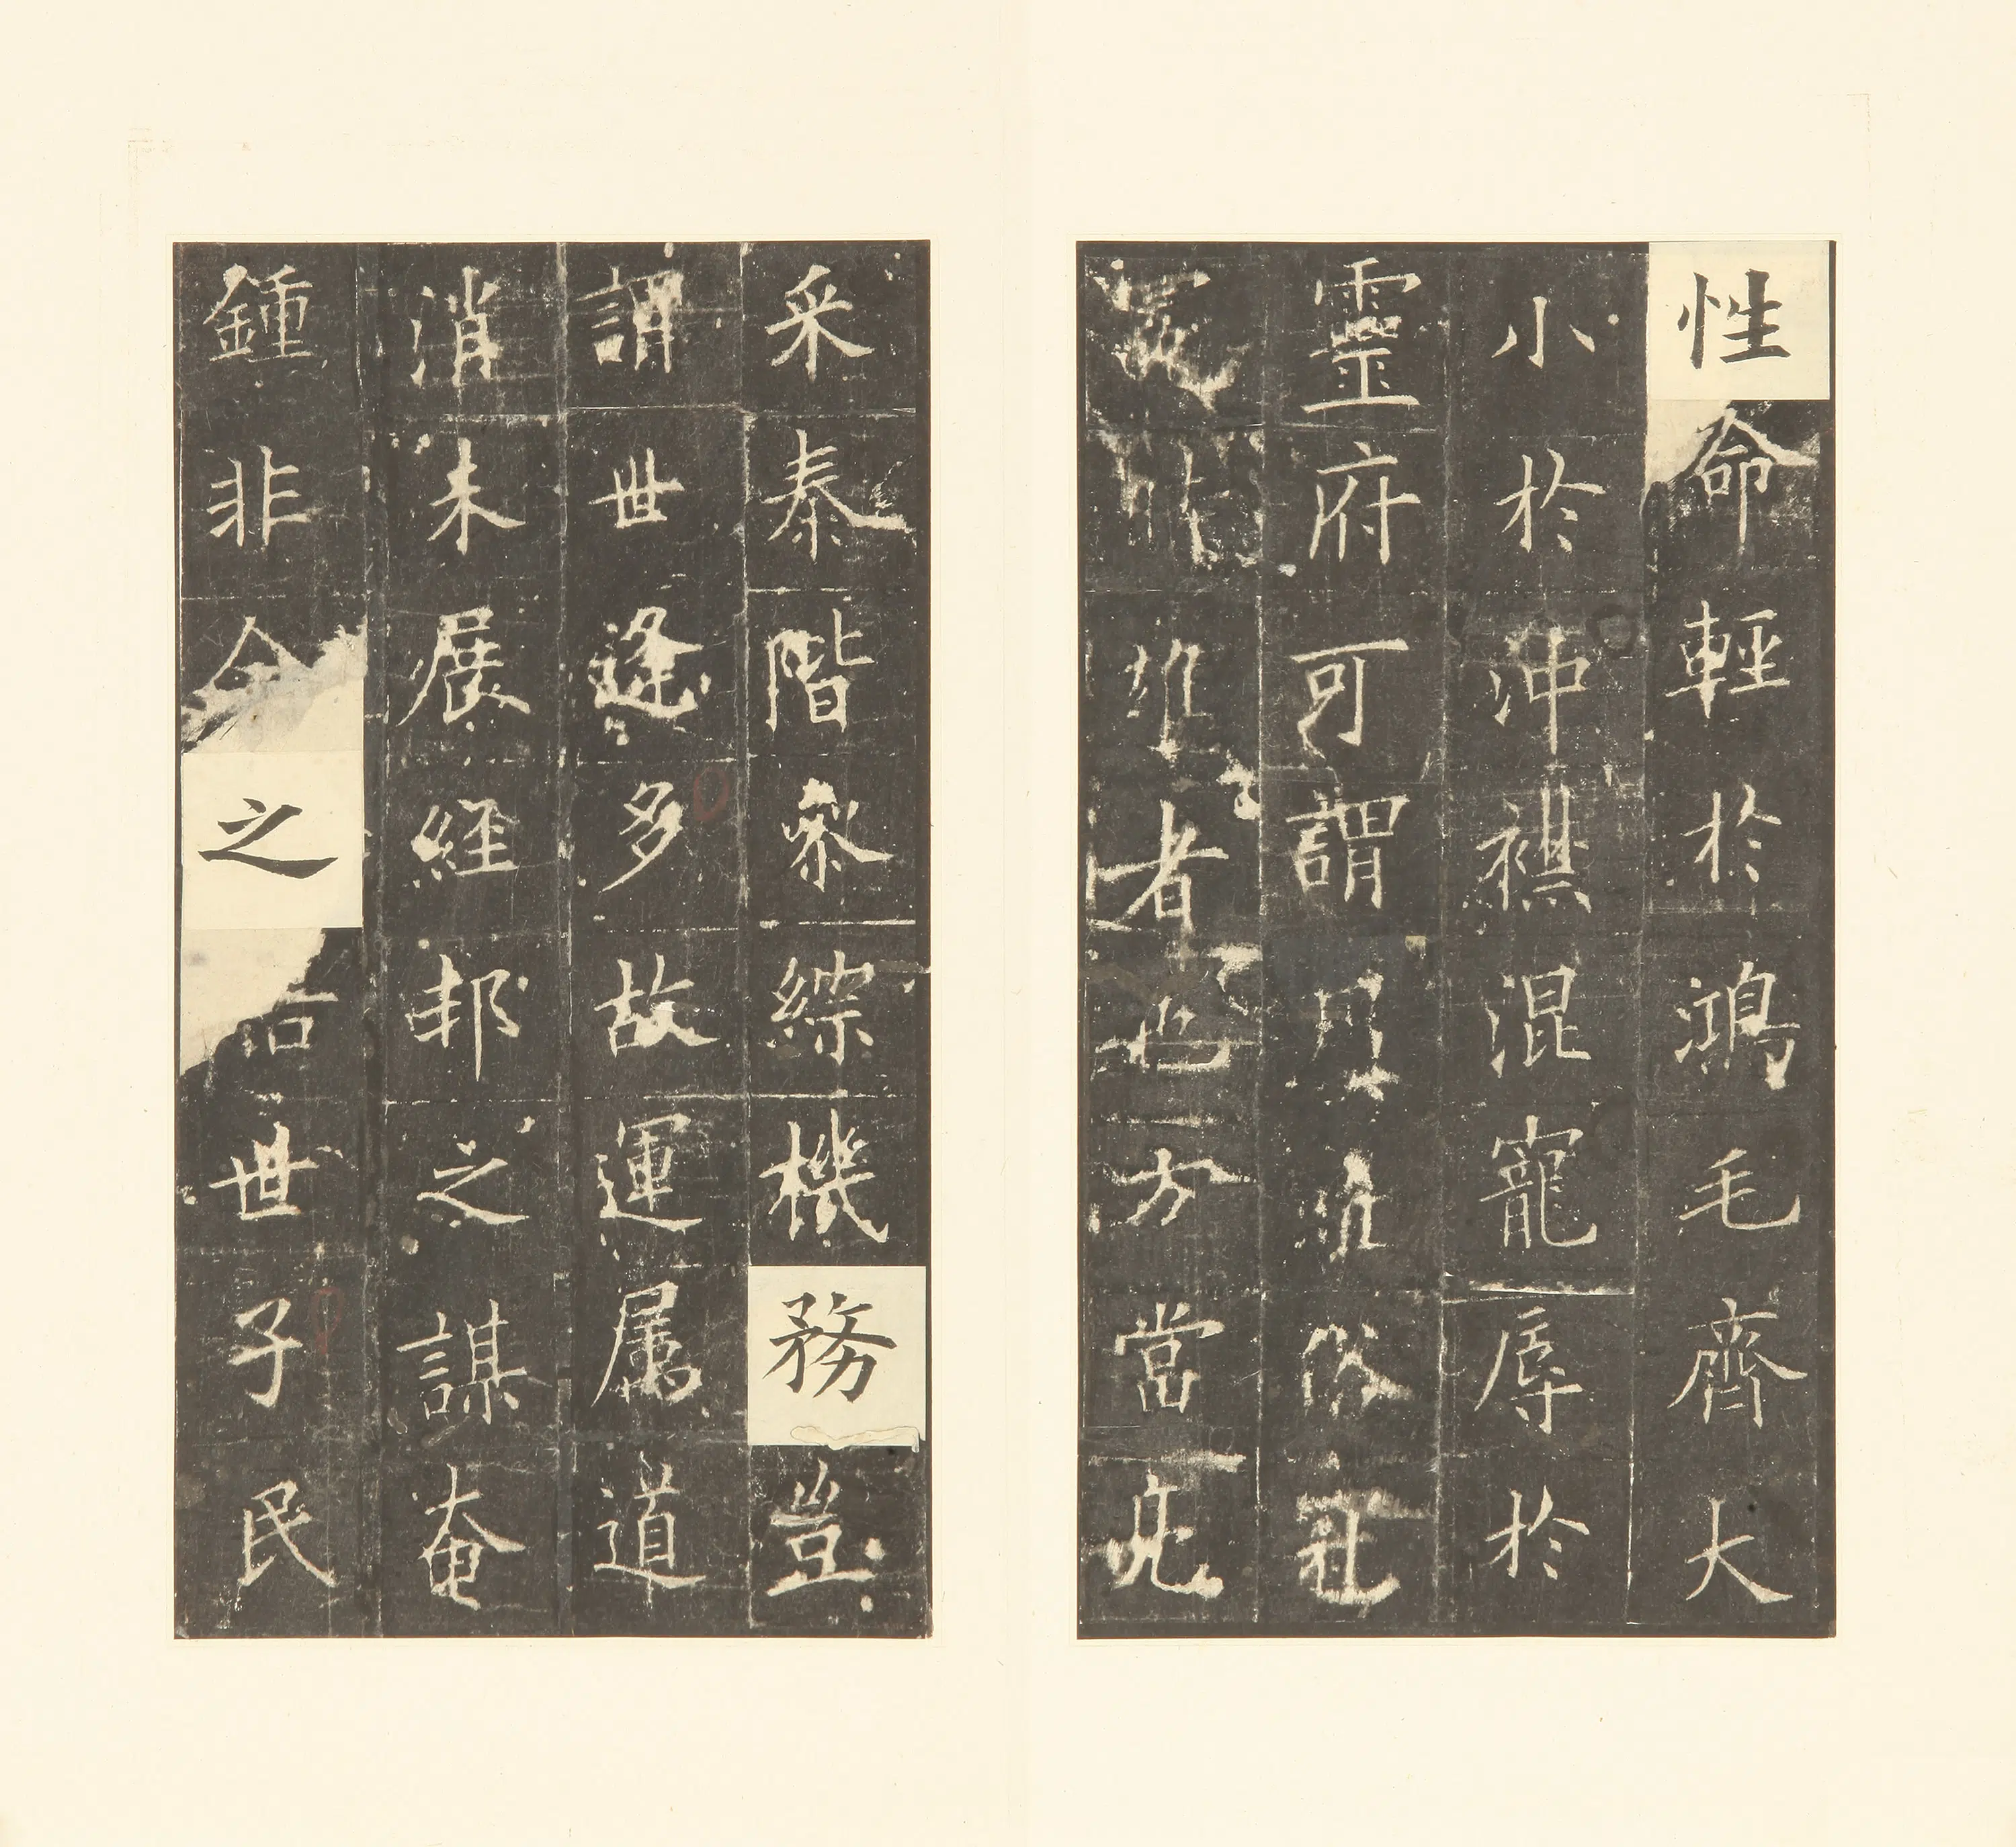 性命輕於鴻毛齊大
小於沖襟混寵辱於
靈府可謂俗
雄者也方當
采泰階參綜機務豈
謂世逢多故運属道
消未展經邦之謀奄
鍾非命之詰世子民